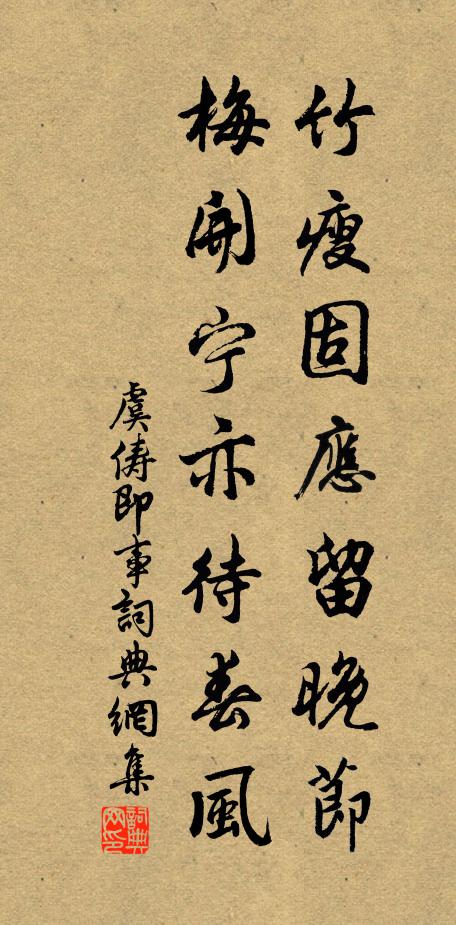 竹瘦固應留晚節
梅開宁亦待春風
虞儔即事詞典網集
詞典網印